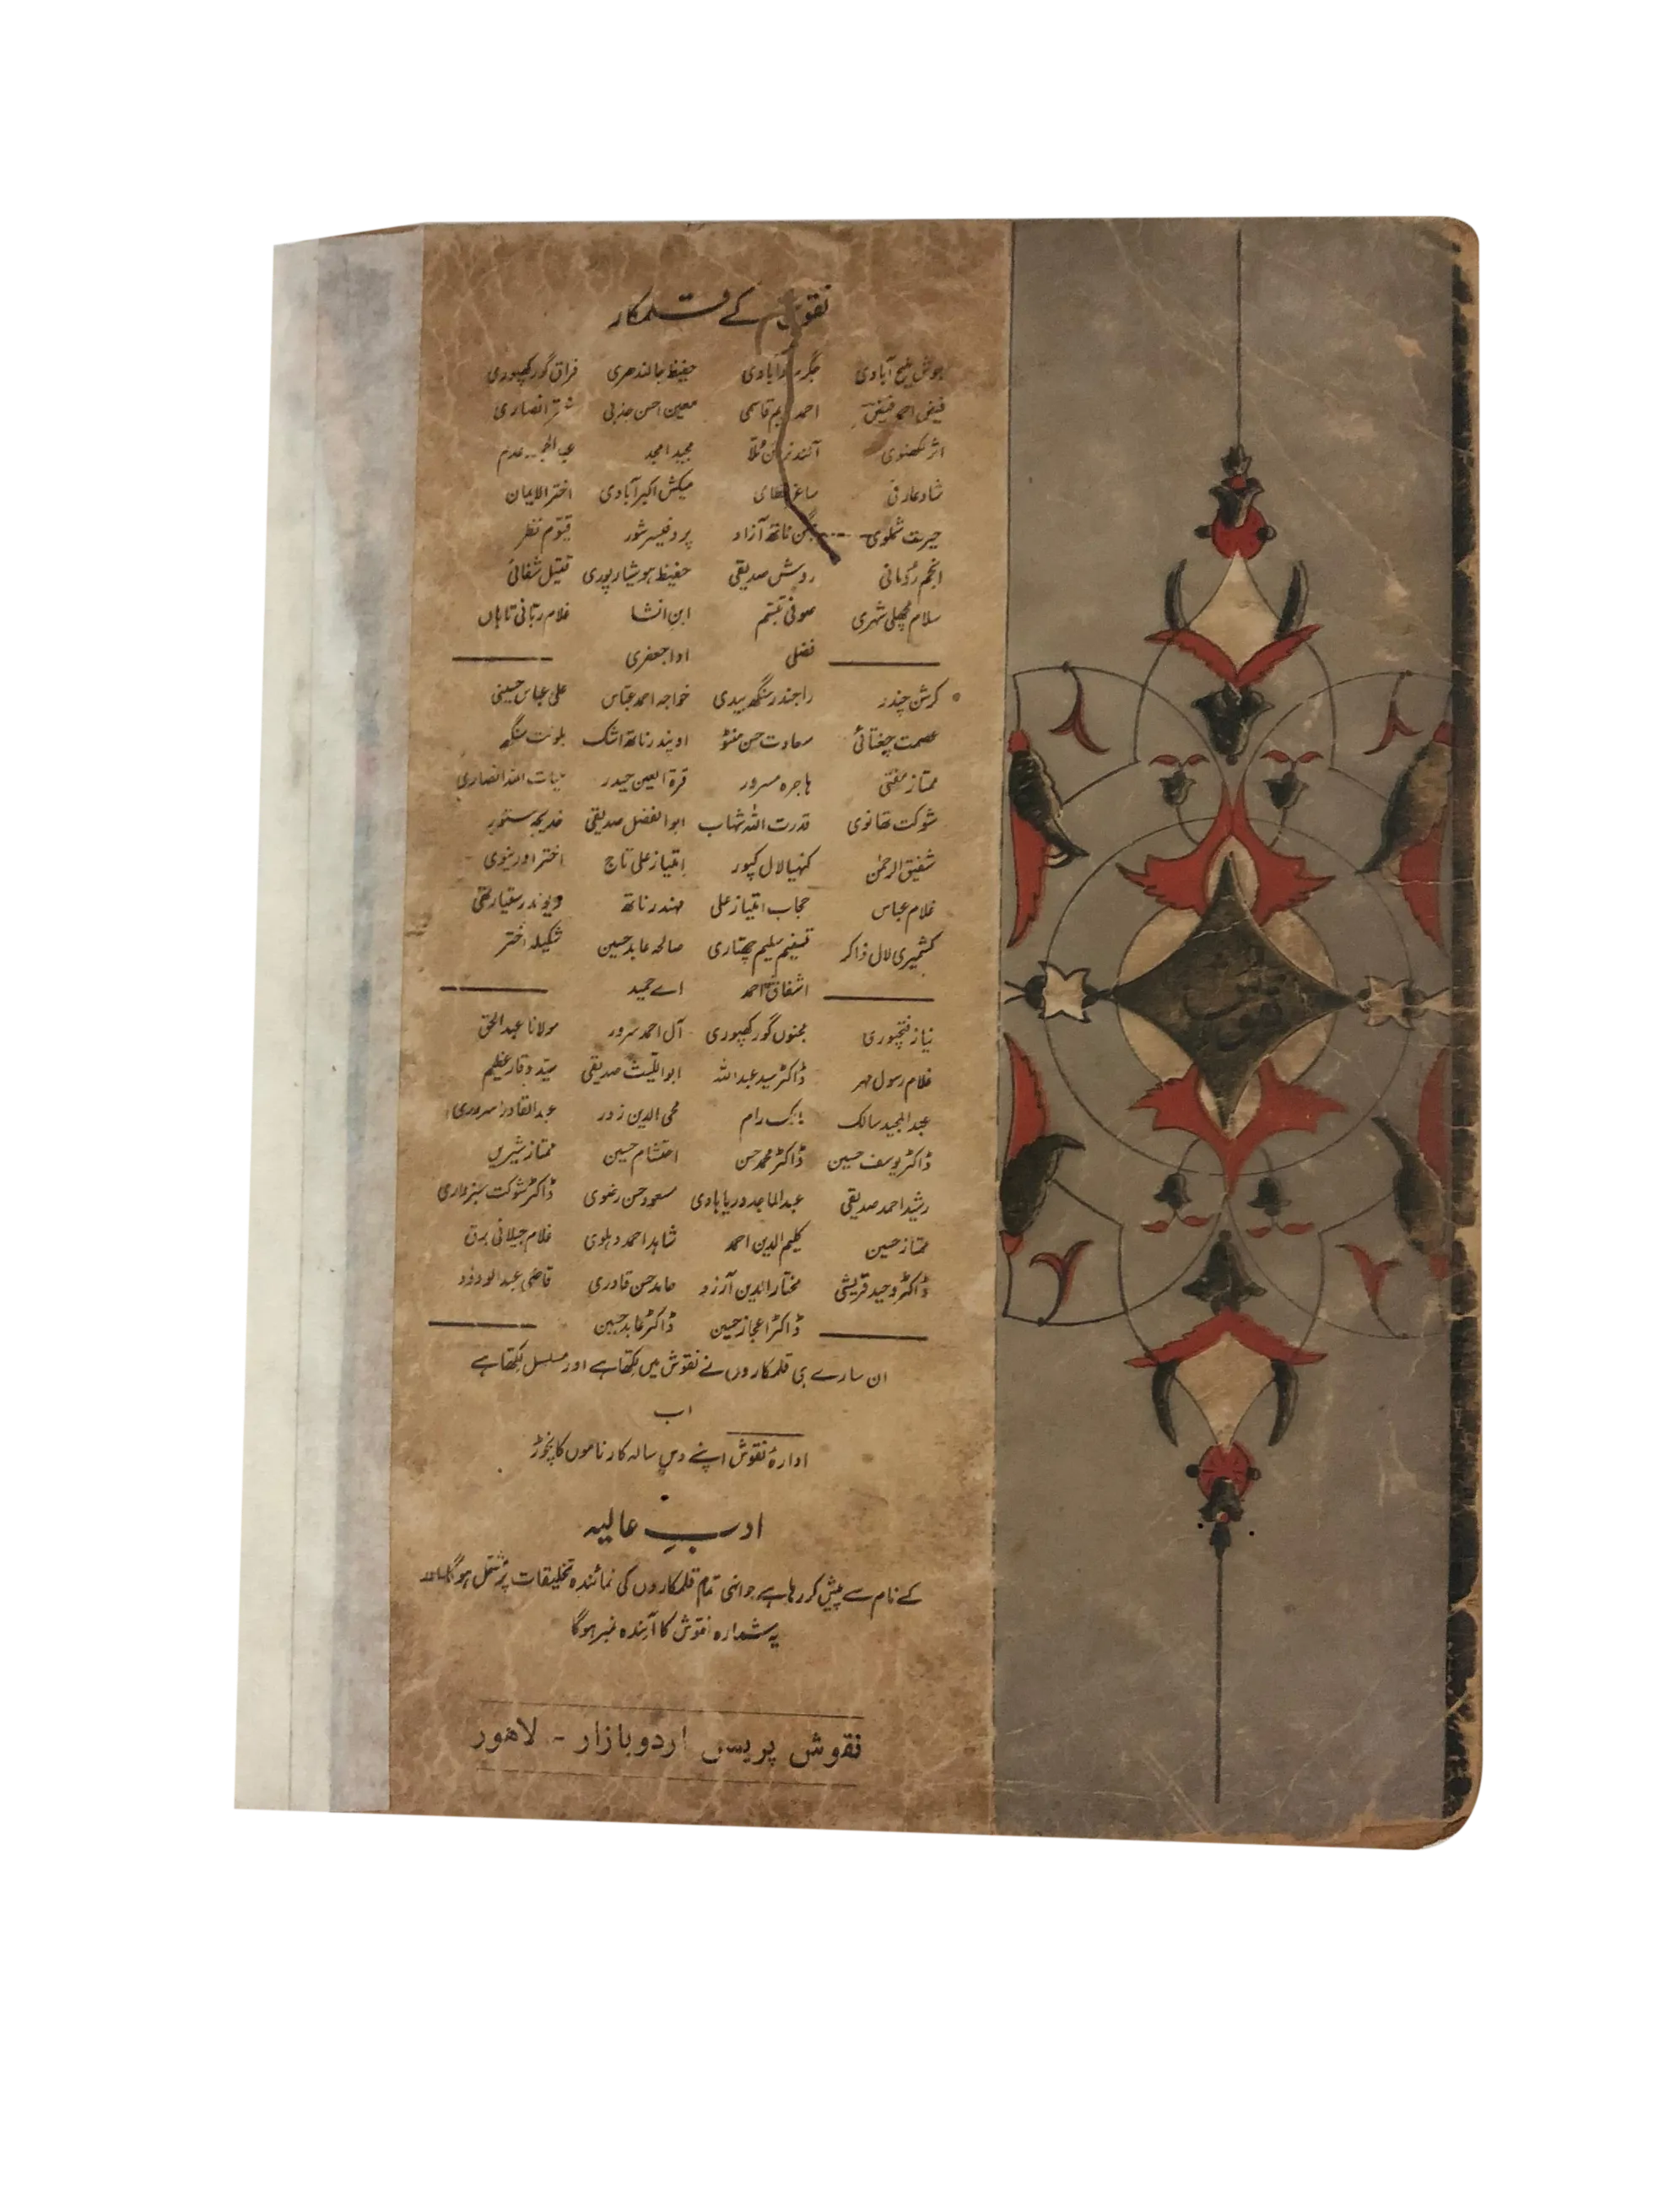 نقوش کے قلمکار
جوش ملیح آبادی جگر مرادآبادی حفیظ جالندھری فراق گورکھپوری
فیض احمد فیض احمد ندیم قاسمی معین احسن جذبی اختر انصاری
اثر لکھنوی آنند نرائن ملا مجید امجد عبدالحمید عدم
شاد عارفی ساغر نظامی میکش اکبرآبادی اختر الایمان
حیرت شملوی جگن ناتھ آزاد پروفیسر شور قیوم نظر
انجم رومانی روش صدیقی حفیظ ہوشیارپوری قتیل شفائی
سلام مچھلی شہری صوفی تبسم ابن انشا غلام ربانی تاباں
فضلی ادا جعفری
کرشن چندر راجندر سنگھ بیدی خواجہ احمد عباس علی عباس حسینی
عصمت چغتائی سعادت حسن منٹو اوپندر ناتھ اشک بلونت سنگھ
ممتاز مفتی ہاجرہ مسرور قرۃ العین حیدر حیات اللہ انصاری
شوکت تھانوی قدرت اللہ شہاب ابوالفضل صدیقی خدیجہ مستور
شفیق الرحمٰن کنہیا لال کپور امتیاز علی تاج اختر اورینوی
غلام عباس حجاب امتیاز علی مہندر ناتھ دیوندر ستیارتھی
کشمیری لال ذاکر تسنیم سلیم چھتاری صالحہ عابد حسین شکیلہ اختر
اشفاق احمد اے حمید
نیاز فتحپوری مجنوں گورکھپوری آل احمد سرور مولانا عبدالحق
غلام رسول مہر ڈاکٹر سید عبداللہ ابواللیث صدیقی سید وقار عظیم
عبدالمجید سالک مالک رام محی الدین زور عبدالقادر سروری
ڈاکٹر یوسف حسین ڈاکٹر محمد حسن احتشام حسین ممتاز شیریں
رشید احمد صدیقی عبدالماجد دریابادی مسعود حسن رضوی ڈاکٹر شوکت سبزواری
ممتاز حسین کلیم الدین احمد شاہد احمد دہلوی غلام جیلانی برق
ڈاکٹر وحید قریشی مختار الدین آرزو حامد حسن قادری قاضی عبدالودود
ڈاکٹر اعجاز حسین ڈاکٹر عابد حسین
ان سارے ہی قلمکاروں نے نقوش میں لکھا ہے اور مسلسل لکھا ہے
اب
ادارۂ نقوش اپنے دس سالہ کارناموں کا نچوڑ
ادبِ عالیہ
کے نام سے پیش کر رہا ہے جو انہی تمام قلمکاروں کی نمائندہ تخلیقات پر مشتمل ہوگا اور
یہ شمارہ نقوش کا آئندہ نمبر ہوگا
نقوش پریس اردو بازار - لاہور
نقوش